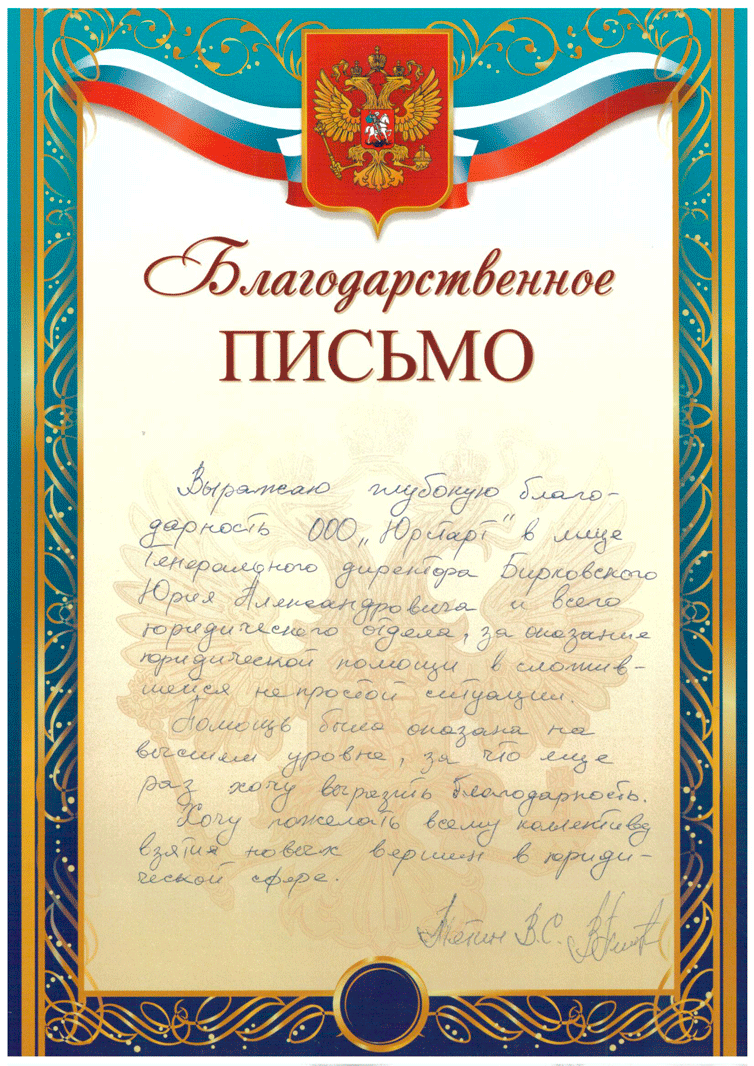 Благодарственное
ПИСЬМО
Выражаю глубокую благо-
дарность ООО „Юрпарт" в лице
Генерального директора Бирковского
Юрия Александровича и всего
юридического отдела, за оказание
юридической помощи в сложив-
шейся непростой ситуации.
Помощь была оказана на
высшем уровне, за что еще
раз хочу выразить благодарность.
Хочу пожелать всему коллективу
взятия новых вершин в юриди-
ческой сфере.
В.С.